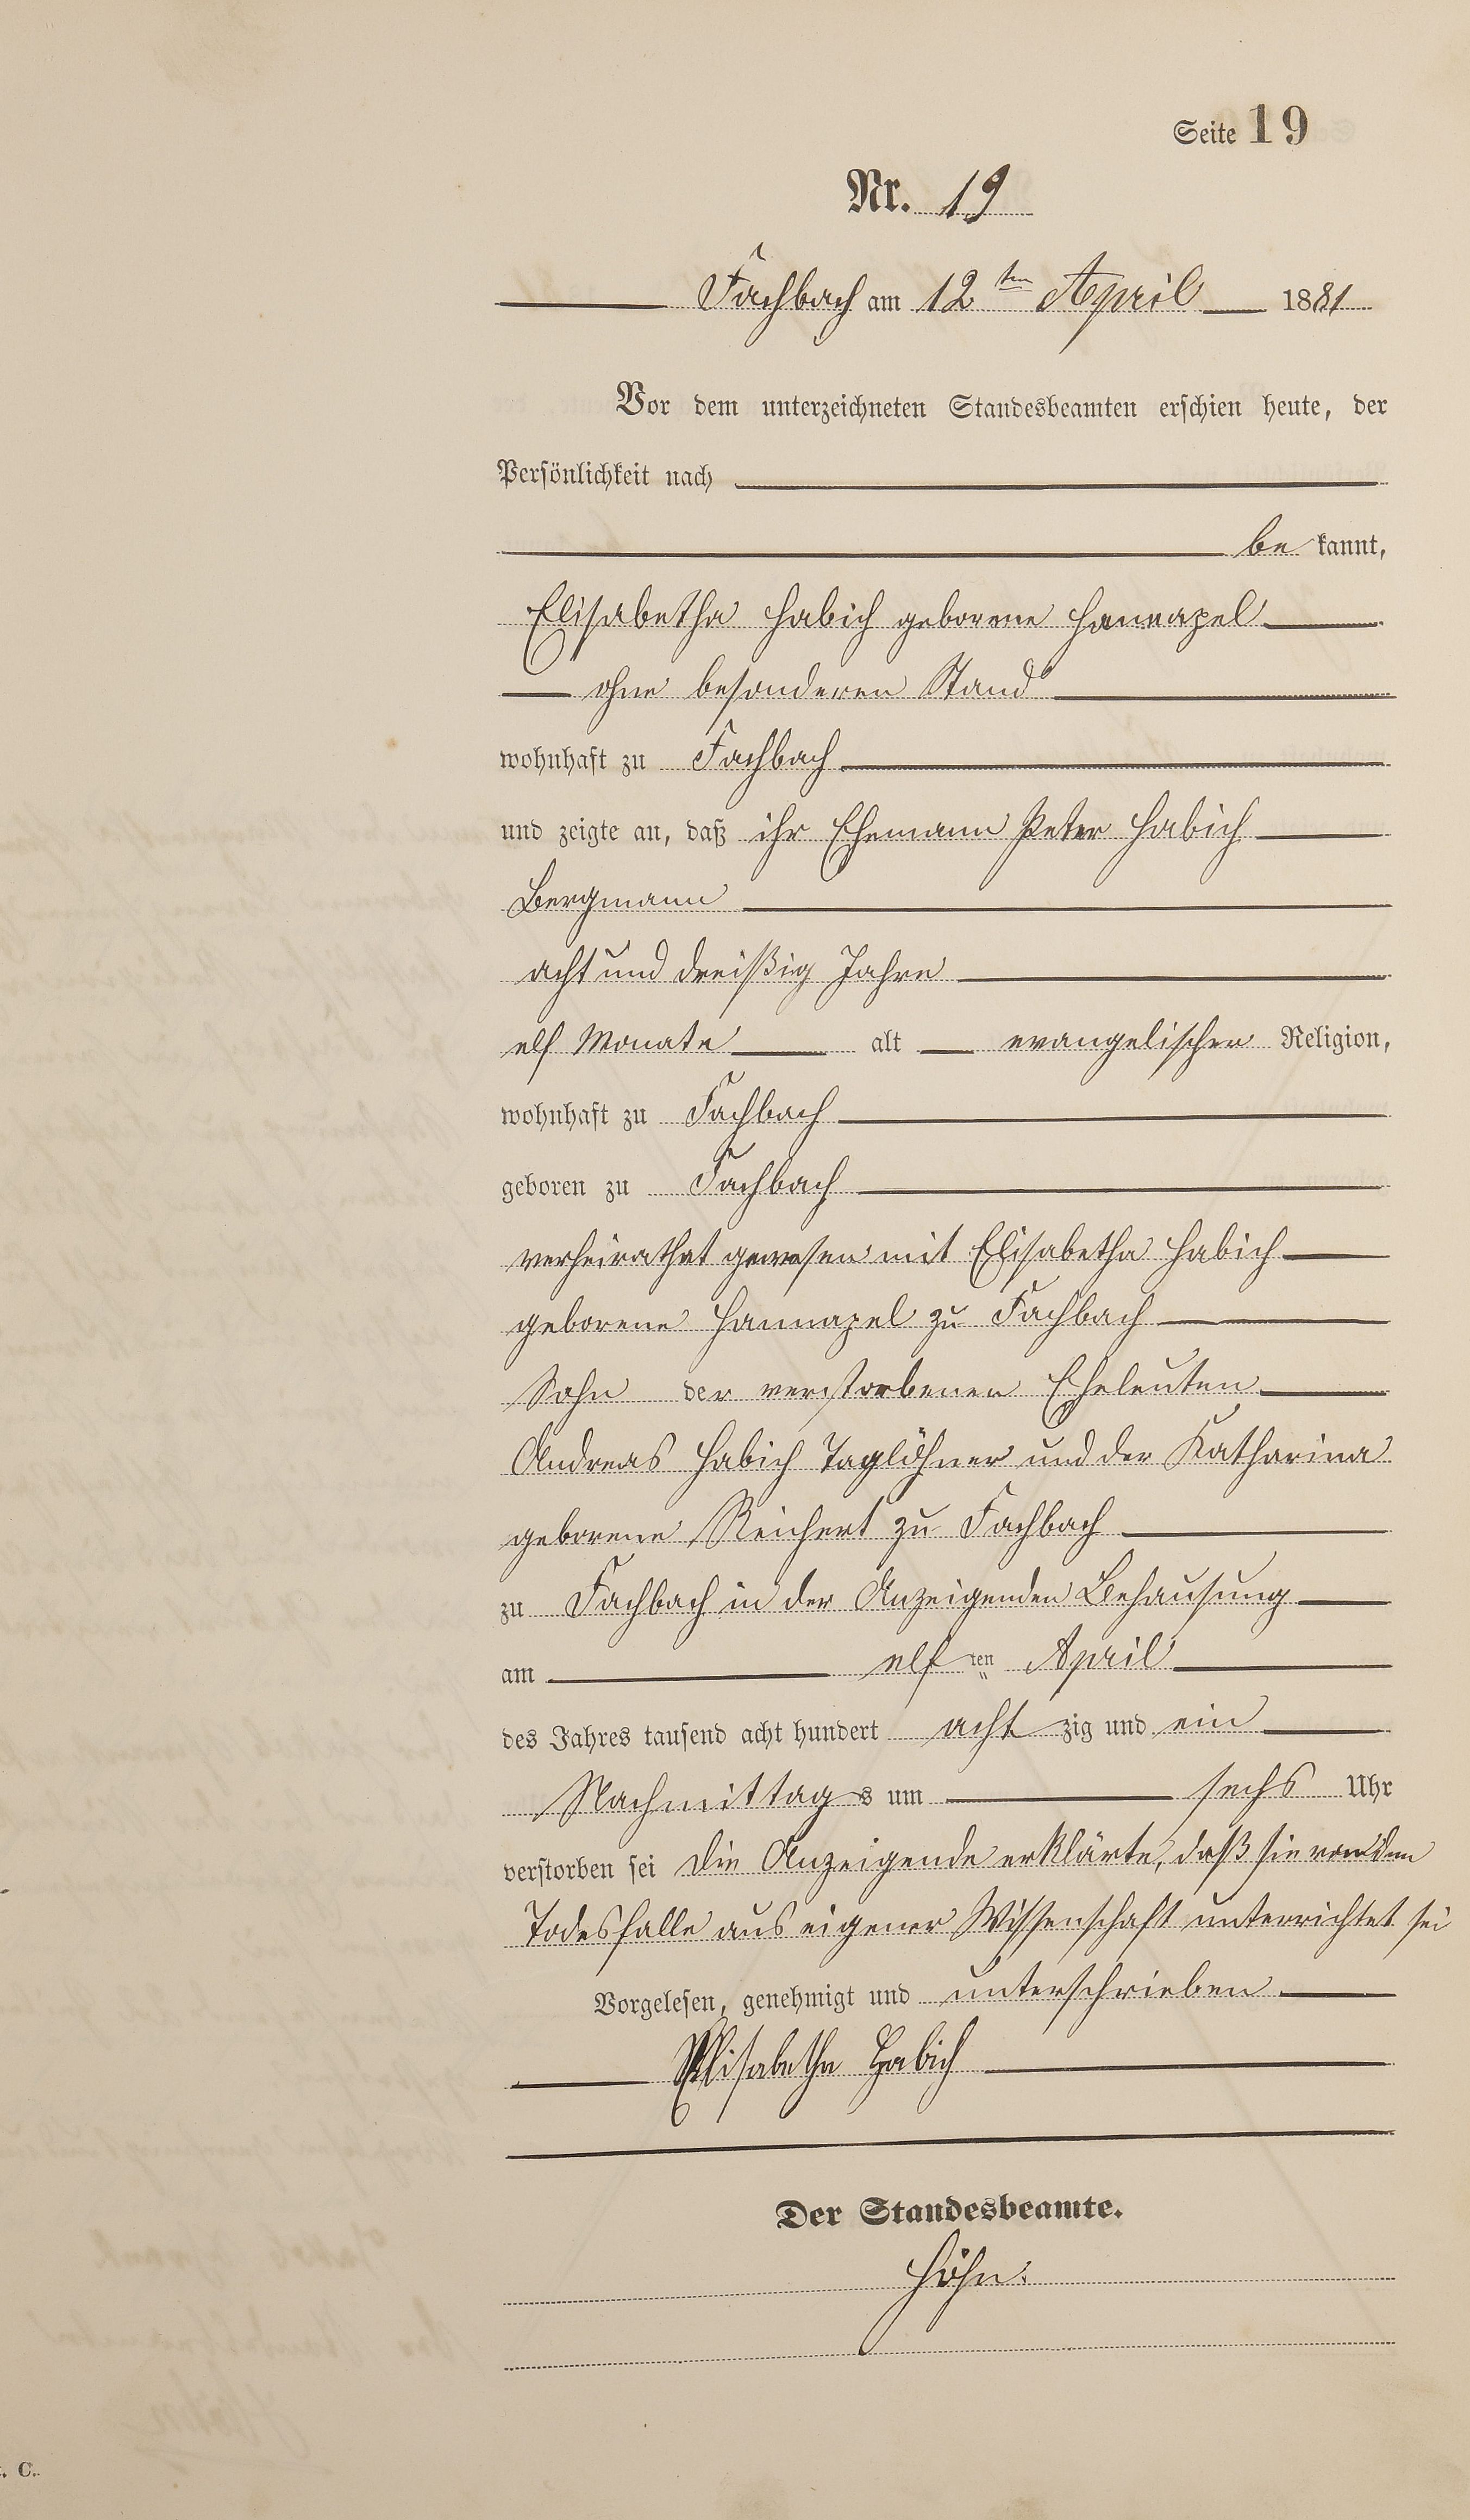 Seite 19
Nr. 19
Fachbach am 12ten April 1881
Vor dem unterzeichneten Standesbeamten erschien heute, der
Persönlichkeit nach
be kannt,
Elisabetha Habich geborene Hannapel
ohne besonderen Stand
wohnhaft zu Fachbach
und zeigte an, daß ihr Ehemann Peter Habich
Bergmann
acht und dreißig Jahre
elf Monate alt evangelischer Religion,
wohnhaft zu Fachbach
geboren zu Fachbach
verheirathet gewesen mit Elisabetha Habich
geborene Hannapel zu Fachbach
Sohn der verstorbenen Eheleuten
Andreas Habich Taglöhner und der Katharina
geborene Reichert zu Fachbach
zu Fachbach in der Anzeigenden Behausung
am elf ten April
des Jahres tausend acht hundert acht zig und ein
Nachmittag s um sechs Uhr
verstorben sei die Anzeigende erklärte, daß sie von dem
Todesfalle aus eigener Wissenschaft unterrichtet sei
Vorgelesen, genehmigt und unterschrieben
Elisabetha Habich
Der Standesbeamte.
Höhn.
. C.